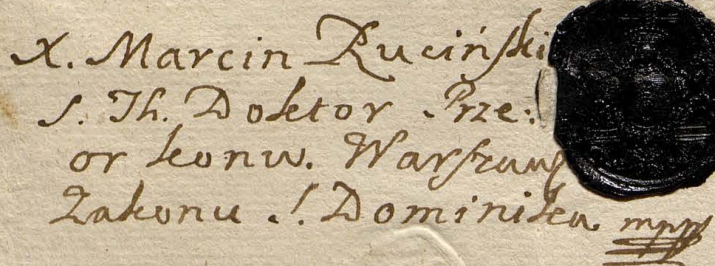 X. Marcin Rucińſki
S. Th. Doktor Prze:
or konw. Warſzaw
Zakonu S. Dominika mpp